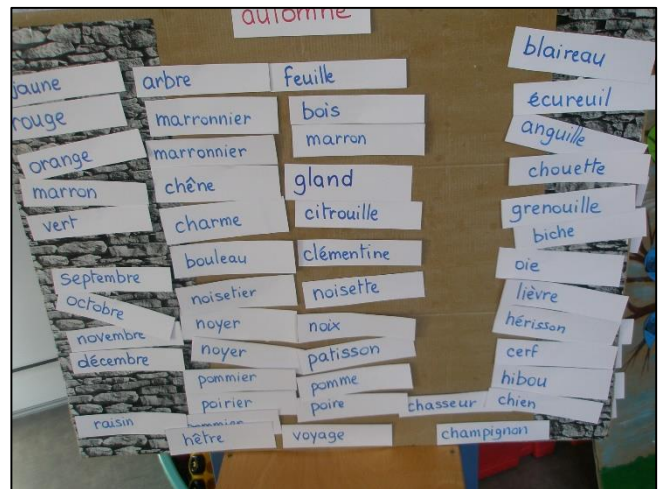 automne
jaune
rouge
orange
marron
vert
septembre
octobre
novembre
décembre
raisin
arbre
marronnier
marronnier
chêne
charme
bouleau
noisetier
noyer
noyer
pommier
poirier
hêtre
feuille
bois
marron
gland
citrouille
clémentine
noisette
noix
patisson
pomme
poire
voyage
chasseur
champignon
blaireau
écureuil
anguille
chouette
grenouille
biche
oie
lièvre
hérisson
cerf
hibou
chien